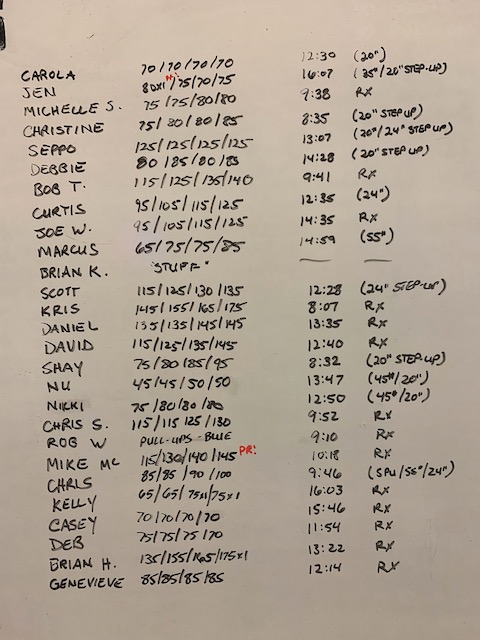 CAROLA 70/70/70/70 12:30 (20")
JEN 80x1/75/70/75 16:07 (35#/20" STEP-UP)
MICHELLE S. 75/75/80/80 9:38 RX
CHRISTINE 75/80/80/85 8:35 (20" STEP UP)
SEPPO 125/125/125/125 13:07 (20#/24" STEP-UPS)
DEBBIE 80/85/80/85 14:28 (20" STEP UP)
BOB T. 115/125/135/140 9:41 RX
CURTIS 95/105/115/125 12:35 (24")
JOE W. 95/105/115/125 14:35 RX
MARCUS 65/75/75/85 14:59 (55#)
BRIAN K. "STUFF" — —
SCOTT 115/125/130/135 12:28 (24" STEP-UP)
KRIS 145/155/165/175 8:07 RX
DANIEL 135/135/145/145 13:35 RX
DAVID 115/125/135/145 12:40 RX
SHAY 75/80/85/95 8:32 (20" STEP-UP)
NU 45/45/50/50 13:47 (45#/20")
NIKKI 75/80/80/80 12:50 (45#/20")
CHRIS S. 115/115 125/130 9:52 RX
ROB W PULL-UPS - BLUE 9:10 RX
MIKE MC 115/130/140/145 PR! 10:18 RX
CHRIS 85/85/90/100 9:46 (SPU/55#/24")
KELLY 65/65/75x1/75x1 16:03 RX
CASEY 70/70/70/70 15:46 RX
DEB 75/75/75/70 11:54 RX
BRIAN H. 135/155/165/175x1 13:22 RX
GENEVIEVE 85/85/85/85 12:14 RX